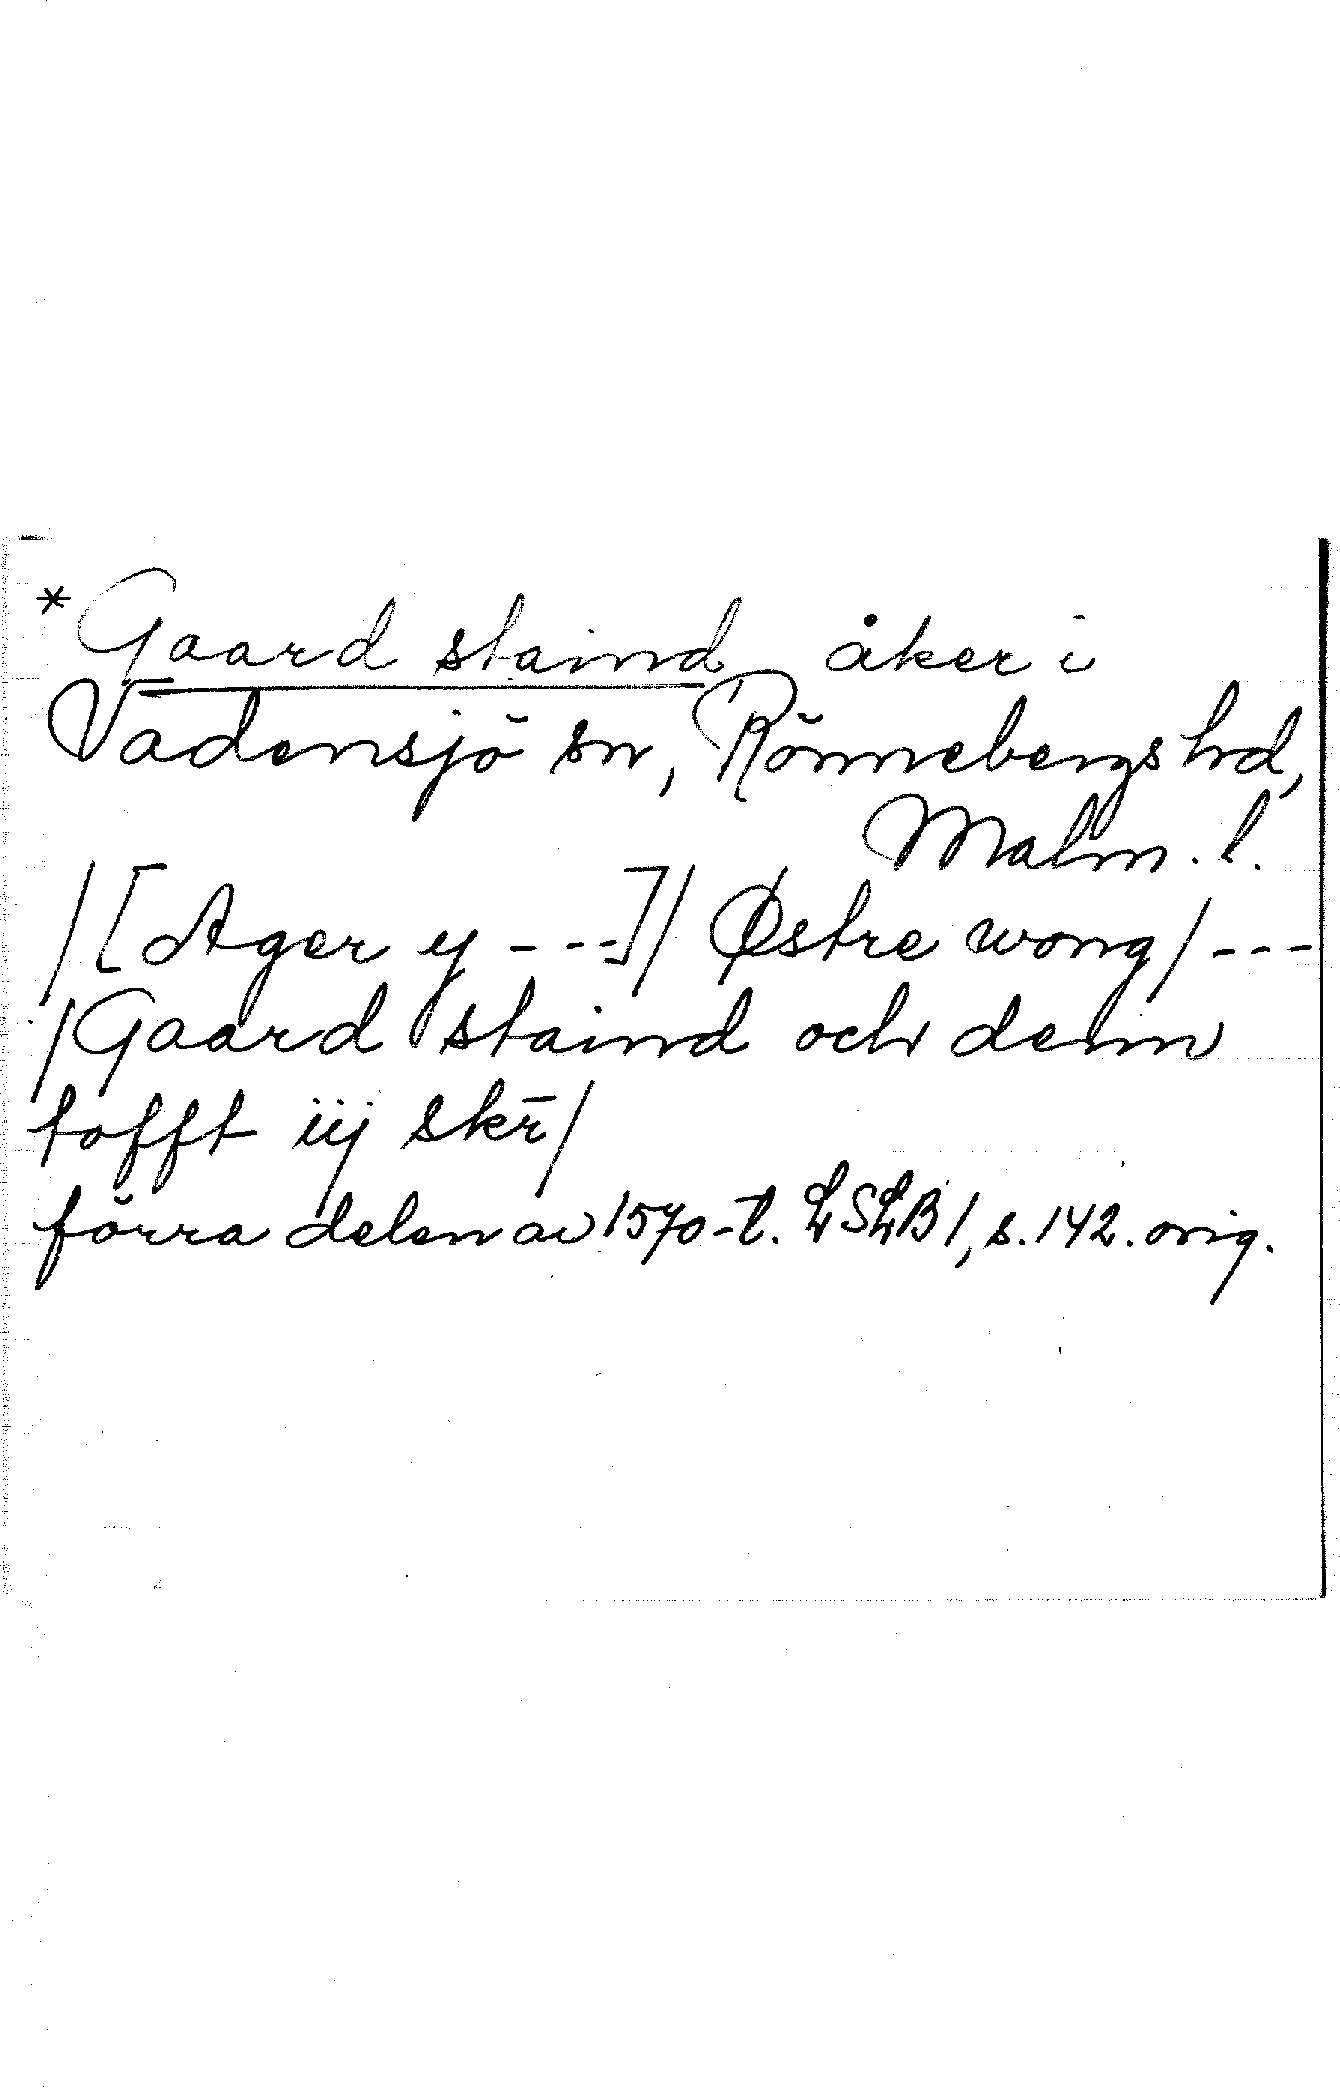 *Gaard staind åker i
Vadensjö sn, Rönnebergs hd,
Malm. l.
/[Ager y ---]/ Østre wong/ ---
/Gaard staind och denn
tofft iij skr̄/
förra delen av 1570-t. LSLB 1, s. 142. orig.